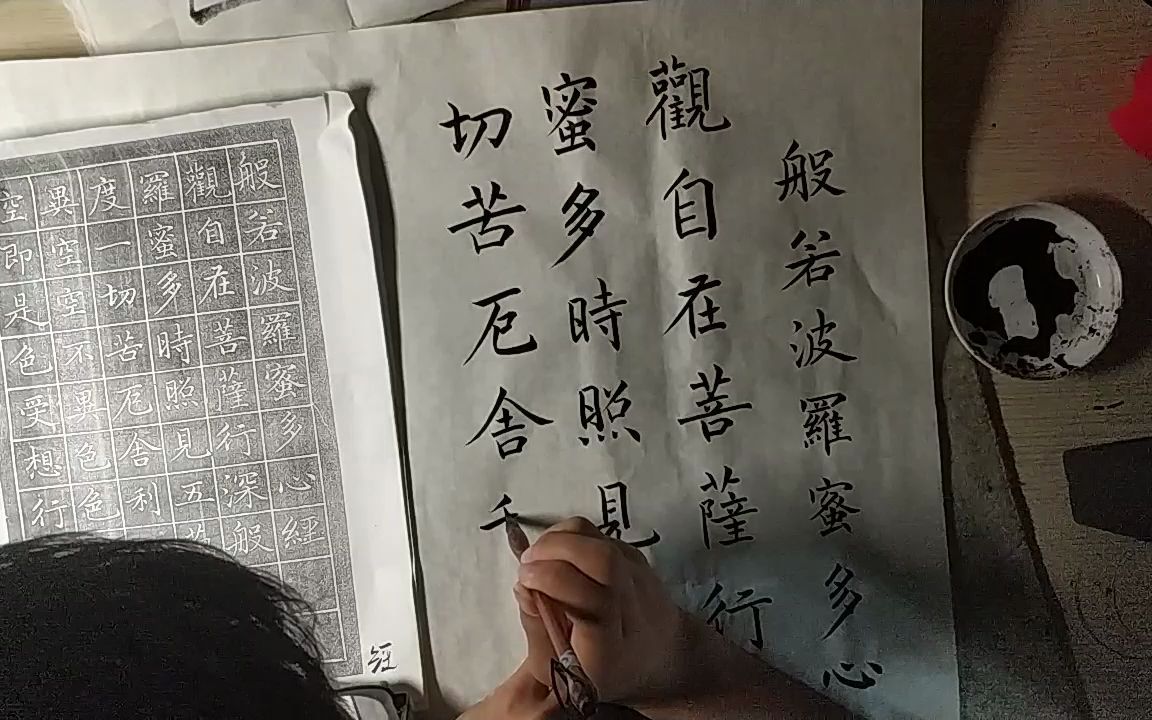 般若波羅蜜多心
觀自在菩薩行
蜜多時照見
切苦厄舍
般若波羅蜜多心經
觀自在菩薩行深般
羅蜜多時照見五
度一切苦厄舍利
異空空不異色色
空即是色受想行